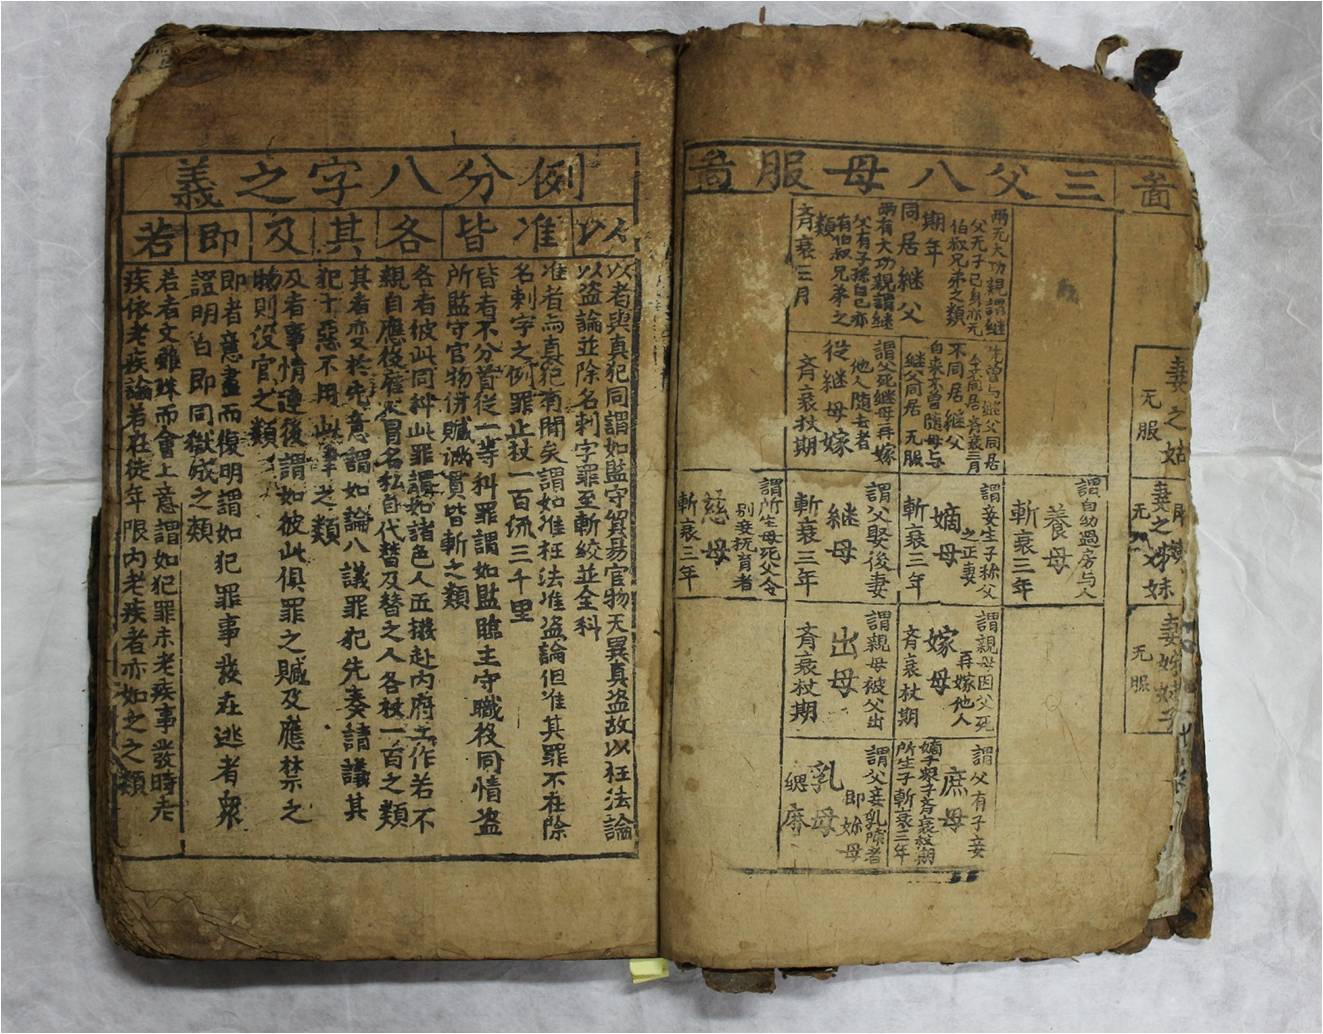 啚
妻之姑
无服
妻之姊妹
无服
妻姊妹子
无服
三父八母服啚
兩无大功親謂継
父无子己身亦无
伯叔兄弟之類
期年
同居継父
兩有大功親謂継
父有子孫自己亦
有伯叔兄弟之
類
斉衰三月
先曾与継父同居
今不同居斉衰三月
不同居継父
自来不曾随母与
継父同居 无服
謂父死継母再嫁
他人随去者
從継母嫁
斉衰杖期
謂自幼過房与人
養母
斬衰三年
謂妾生子称父
之正妻
嫡母
斬衰三年
謂父娶後妻
継母
斬衰三年
謂所生母死父令
別妾抚育者
慈母
斬衰三年
謂親母因父死
再嫁他人
嫁母
斉衰杖期
謂親母被父出
出母
斉衰杖期
謂父有子妾
庶母
嫡子衆子斉衰杖期
所生子斬衰三年
謂父妾乳哺者
即奶母
乳母
緦麻
例分八字之義
以 准 皆 各 其 及 即 若
以者與真犯同謂如監守貿易官物无異真盗故以枉法論
以盗論並除名刺字罪至斬絞並全科
准者与真犯有間矣謂如准枉法准盗論但准其罪不在除
名刺字之例罪止杖一百流三千里
皆者不分首從一等科罪謂如監臨主守職役同情盗
所監守官物併贓滿貫皆斬之類
各者彼此同科此罪謂如諸色人匠撥赴内府工作若不
親自應役雇人冒名私自代替及替之人各杖一百之類
其者变於先意謂如論八議罪犯先奏請議其
犯十惡不用此律之類
及者事情連後謂如彼此俱罪之贓及應禁之
物則沒官之類
即者意盡而復明謂如犯罪事發在逃者衆
證明白即同獄成之類
若者文雖殊而會上意謂如犯罪未老疾事發時老
疾依老疾論若在徒年限內老疾者亦如之之類